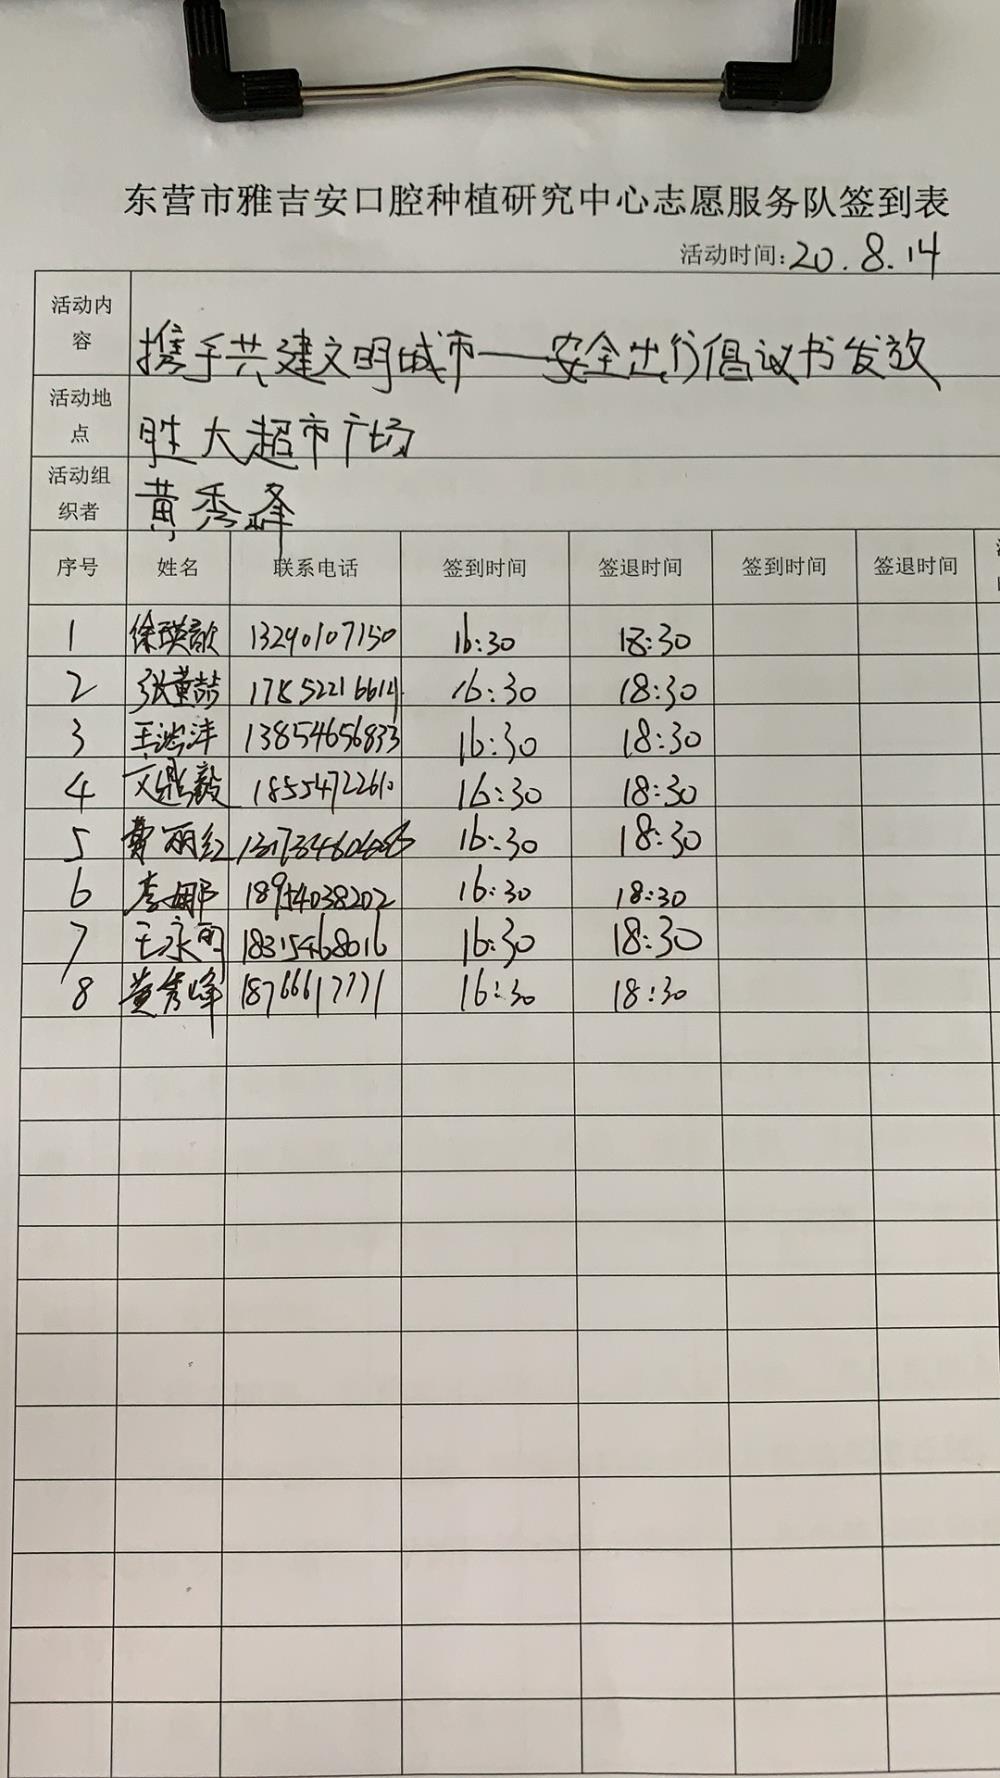 东营市雅吉安口腔种植研究中心志愿服务队签到表
活动时间:20.8.14
活动内容 携手共建文明城市——安全出行倡议书发放
活动地点 胜大超市广场
活动组织者 黄秀峰
序号 姓名 联系电话 签到时间 签退时间 签到时间 签退时间
1 徐瑛歆 13290107150 16:30 18:30
2 张董喆 16:30 18:30
3 王鸿沣 13854656833 16:30 18:30
4 文鼎毅 18554722610 16:30 18:30
5 费丽红 16:30 18:30
6 李娜 18954038202 16:30 18:30
7 王永丽 18315468016 16:30 18:30
8 黄秀峰 18766617771 16:30 18:30